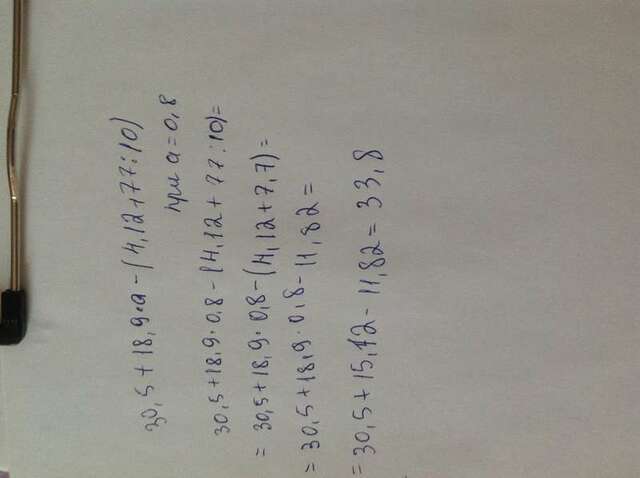 30,5+18,9·a-(4,12+77:10)
при a=0,8
30,5+18,9·0,8-(4,12+77:10)=
=30,5+18,9·0,8-(4,12+7,7)=
=30,5+18,9·0,8-11,82=
=30,5+15,12-11,82=33,8